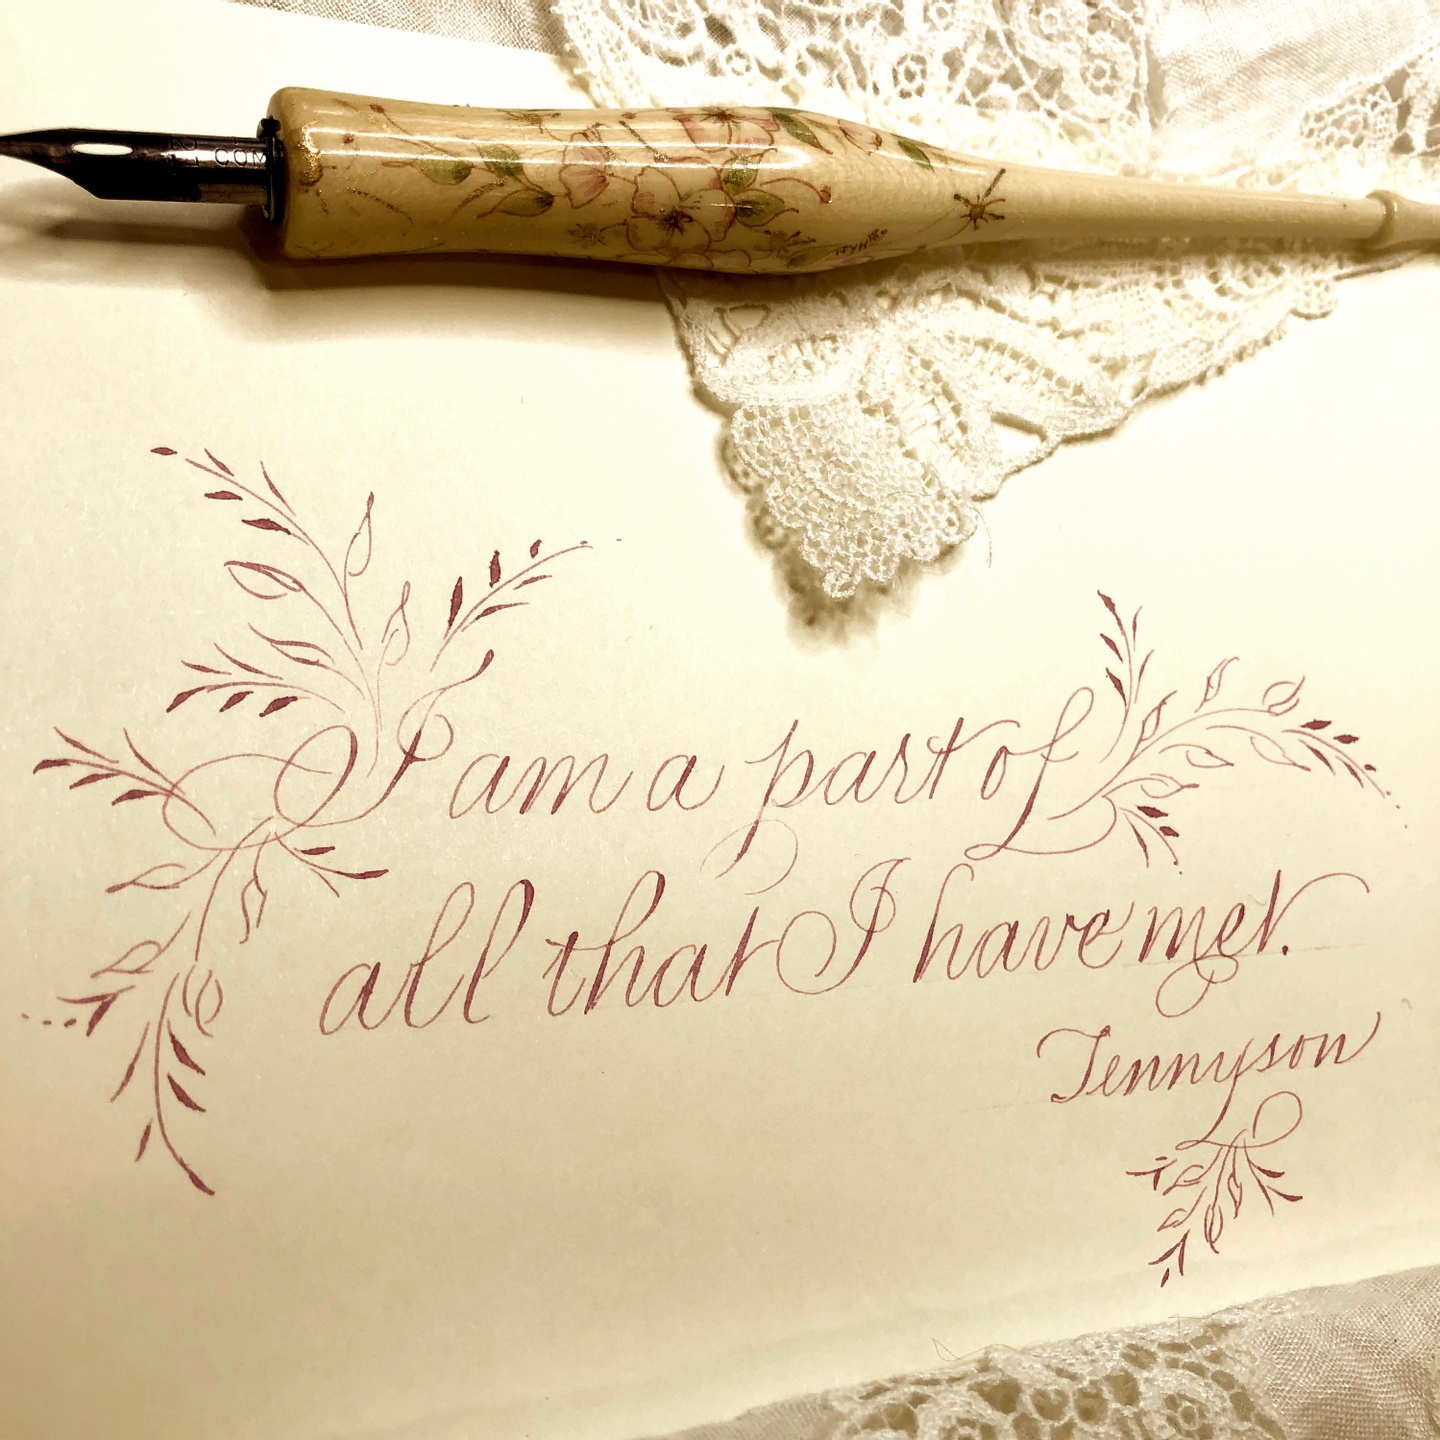 COM
I am a part of
all that I have met.
Tennyson